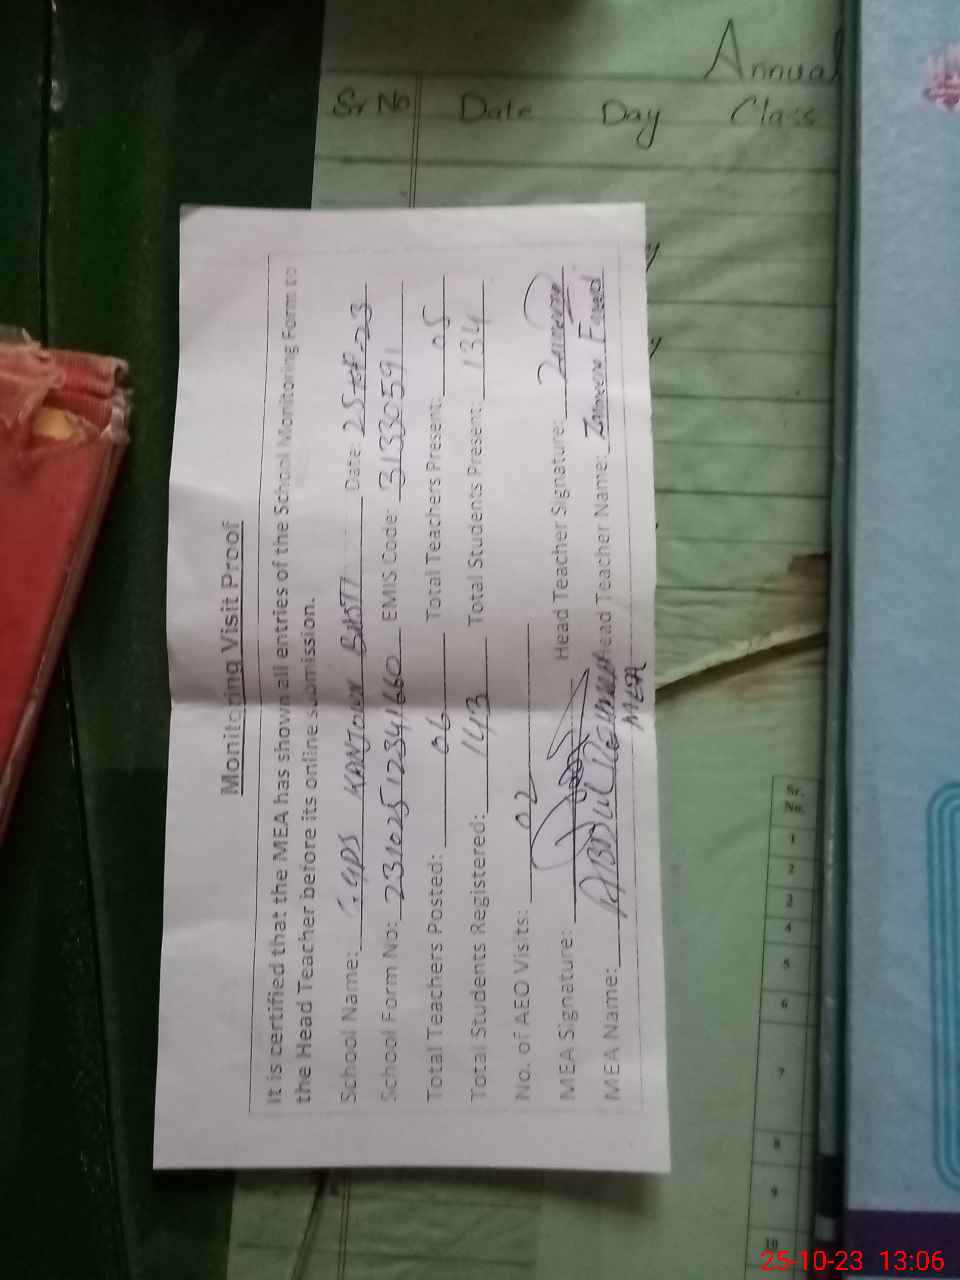 Annual
Sr No Date Day Class
Monitoring Visit Proof
It is certified that the MEA has shown all entries of the School Monitoring Form to
the Head Teacher before its online submission.
School Name: GGPS KANJOUR BASTI Date: 25-10-23
School Form No: 23102512341660 EMIS Code: 31330591
Total Teachers Posted: 06 Total Teachers Present: 05
Total Students Registered: 143 Total Students Present: 134
No. of AEO Visits: 02
MEA Signature: Head Teacher Signature:
MEA Name: ABDUL Head Teacher Name:
MEA
Sr.
No.
1
2
3
4
5
6
7
8
9
10
25-10-23 13:06